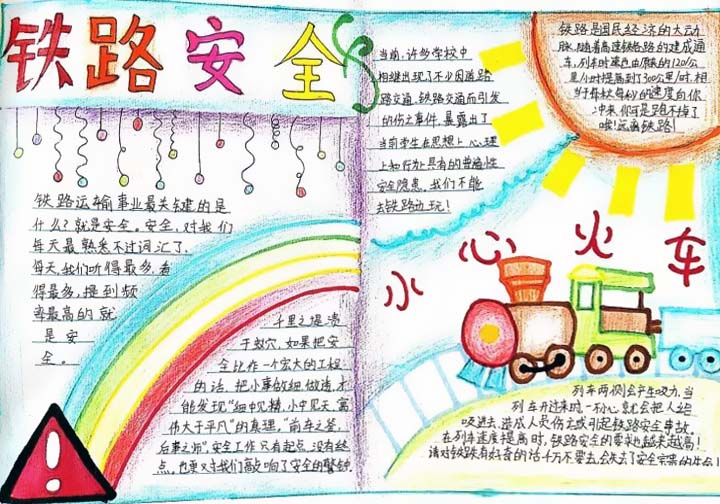 铁路安全
铁路运输事业最关键的是
什么？就是安全。安全，对我们
每天最熟悉不过词汇了，
每天，我们听得最多，看
得最多，提到频
率最高的就
是安
全。
千里之堤溃
于蚁穴，如果把安
全比作一个宏大的工程
的话，把小事做细做清，才
能发现“细中见精，小中见天，寓
伟大于平凡”的真理，“前车之鉴，
后事之师”，安全工作只有起点，没有终
点，也更对我们敲响了安全的警钟
当前，许多学校中
相继出现了不少因道路
路交通、铁路交通而引发
的伤亡事件，暴露出了
当前学生在思想上、心理
上和行为上具有的普遍性
安全隐患。我们不能
去铁路边玩！
铁路是国民经济的大动
脉，随着高速铁路的建成通
车，列车时速也由原来的120公
里/小时提高到了300公里/时，相
当于每秒的速度向你
冲来，你可是跑不掉了
哦！远离铁路！
小心火车
列车两侧会产生吸力，当
列车开过来时，一不小心就会把人给
吸进去，造成人员伤亡或引起铁路安全事故。
在列车速度提高时，铁路安全的要求也越来越高！
请对铁路有好奇的话千万不要去，会失去了安全宝贵的生命！